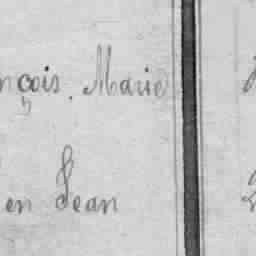 nçois, Marie
en Jean